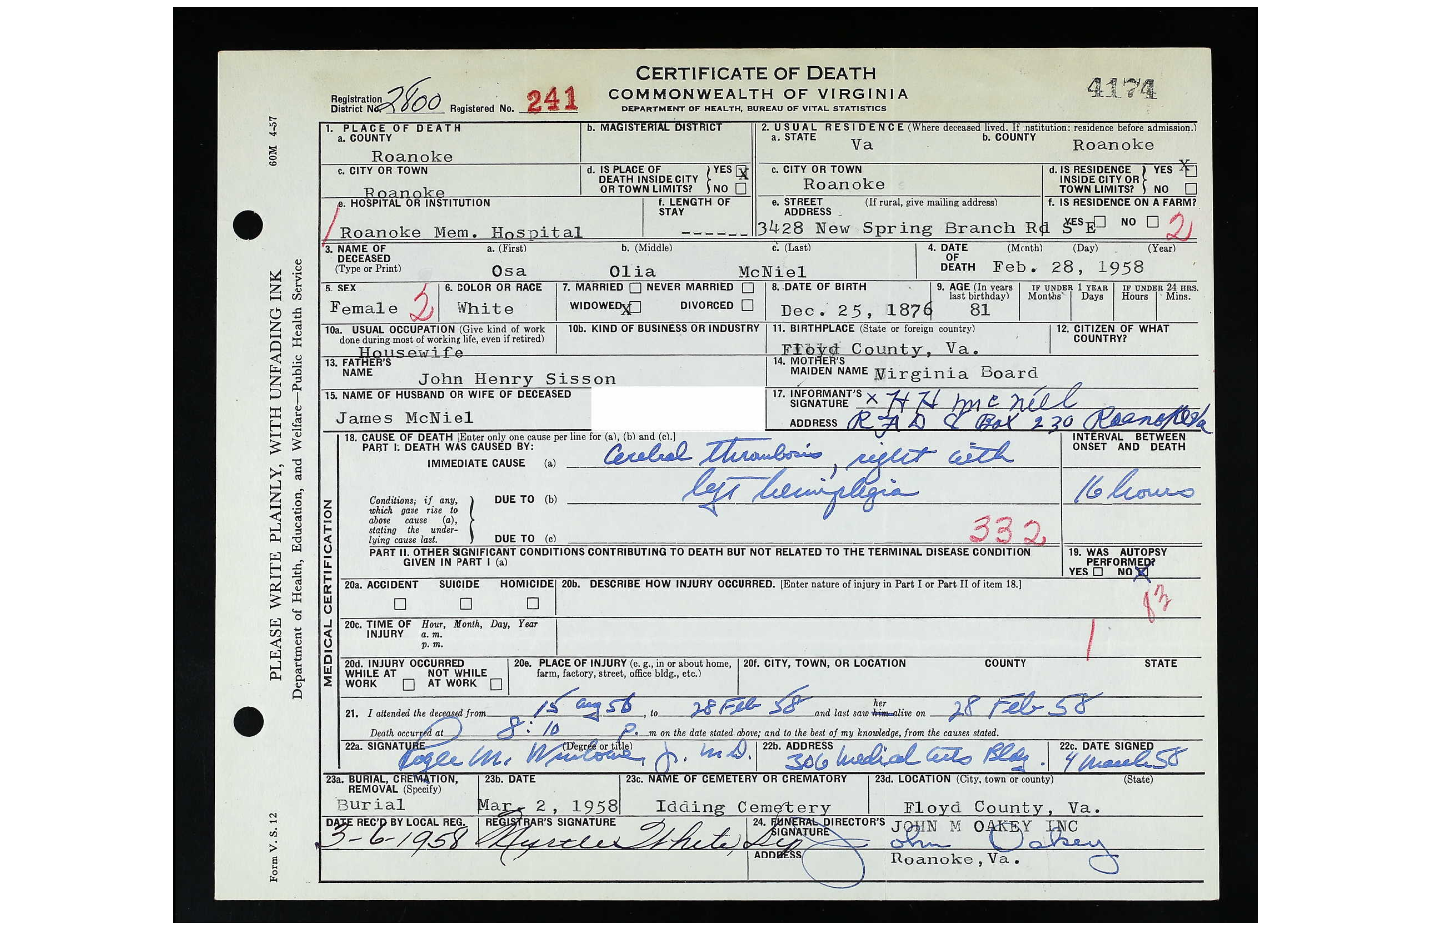 CERTIFICATE OF DEATH
COMMONWEALTH OF VIRGINIA
DEPARTMENT OF HEALTH, BUREAU OF VITAL STATISTICS
Registration District No. 2800 Registered No. 241
4174
60M 4-57
PLEASE WRITE PLAINLY, WITH UNFADING INK
Department of Health, Education, and Welfare—Public Health Service
Form V. S. 12
1. PLACE OF DEATH
a. COUNTY
Roanoke
b. MAGISTERIAL DISTRICT
2. USUAL RESIDENCE (Where deceased lived. If nstitution: residence before admission.)
a. STATE
Va
b. COUNTY
Roanoke
c. CITY OR TOWN
Roanoke
d. IS PLACE OF DEATH INSIDE CITY OR TOWN LIMITS? YES X NO
c. CITY OR TOWN
Roanoke
d. IS RESIDENCE INSIDE CITY OR TOWN LIMITS? YES X NO
e. HOSPITAL OR INSTITUTION
Roanoke Mem. Hospital
f. LENGTH OF STAY
------
e. STREET ADDRESS (If rural, give mailing address)
3428 New Spring Branch Rd S E
f. IS RESIDENCE ON A FARM?
YES NO 2
3. NAME OF DECEASED (Type or Print)
a. (First) b. (Middle) c. (Last)
Osa Olia McNiel
4. DATE OF DEATH (Month) (Day) (Year)
Feb. 28, 1958
5. SEX
Female 2
6. COLOR OR RACE
White
7. MARRIED NEVER MARRIED
WIDOWED X DIVORCED
8. DATE OF BIRTH
Dec. 25, 1876
9. AGE (In years last birthday)
81
IF UNDER 1 YEAR Months Days
IF UNDER 24 HRS. Hours Mins.
10a. USUAL OCCUPATION (Give kind of work done during most of working life, even if retired)
Housewife
10b. KIND OF BUSINESS OR INDUSTRY
11. BIRTHPLACE (State or foreign country)
Floyd County, Va.
12. CITIZEN OF WHAT COUNTRY?
13. FATHER'S NAME
John Henry Sisson
14. MOTHER'S MAIDEN NAME Virginia Board
15. NAME OF HUSBAND OR WIFE OF DECEASED
James McNiel
17. INFORMANT'S SIGNATURE x H H McNeill
ADDRESS Box 230 Roanoke Va
MEDICAL CERTIFICATION
18. CAUSE OF DEATH [Enter only one cause per line for (a), (b) and (c).]
PART I: DEATH WAS CAUSED BY:
INTERVAL BETWEEN ONSET AND DEATH
IMMEDIATE CAUSE (a) Cerebral thrombosis, right with
left hemiplegia
16 hours
Conditions, if any, which gave rise to above cause (a), stating the underlying cause last.
DUE TO (b)
DUE TO (c)
332
PART II. OTHER SIGNIFICANT CONDITIONS CONTRIBUTING TO DEATH BUT NOT RELATED TO THE TERMINAL DISEASE CONDITION GIVEN IN PART I (a)
19. WAS AUTOPSY PERFORMED?
YES NO X
20a. ACCIDENT SUICIDE HOMICIDE
20b. DESCRIBE HOW INJURY OCCURRED. [Enter nature of injury in Part I or Part II of item 18.]
20c. TIME OF INJURY Hour, Month, Day, Year
a. m.
p. m.
20d. INJURY OCCURRED
WHILE AT WORK NOT WHILE AT WORK
20e. PLACE OF INJURY (e. g., in or about home, farm, factory, street, office bldg., etc.)
20f. CITY, TOWN, OR LOCATION COUNTY STATE
21. I attended the deceased from 15 Aug 56, to 28 Feb 58 and last saw him her alive on 28 Feb 58
Death occurred at 8:10 P. m on the date stated above; and to the best of my knowledge, from the causes stated.
22a. SIGNATURE (Degree or title)
Jr. M.D.
22b. ADDRESS
306 Medical Arts Bldg.
22c. DATE SIGNED
4 March 58
23a. BURIAL, CREMATION, REMOVAL (Specify)
Burial
23b. DATE
Mar. 2, 1958
23c. NAME OF CEMETERY OR CREMATORY
Idding Cemetery
23d. LOCATION (City, town or county) (State)
Floyd County, Va.
DATE REC'D BY LOCAL REG.
3-6-1958
REGISTRAR'S SIGNATURE
Myrtle White, Dep
24. FUNERAL DIRECTOR'S SIGNATURE
JOHN M OAKEY INC
John Oakey
ADDRESS
Roanoke, Va.